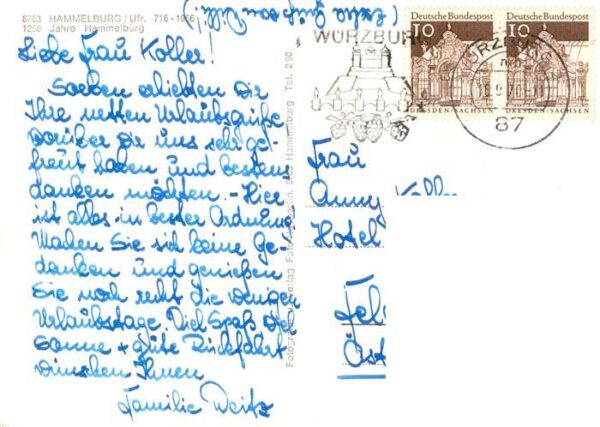 8783 HAMMELBURG / Ufr. 716 - 1966
1250 Jahre Hammelburg
Liebe Frau Koller!
Soeben erhielten wir
Ihre netten Urlaubsgrüße
worüber wir uns sehr ge-
freut haben und bestens
danken möchten. - Hier
ist alles in bester Ordnung
Machen Sie sich keine Ge-
danken und genießen
Sie noch recht die wenigen
Urlaubstage. Viel Spaß
Sonne + gute Rückfahrt
wünschen Ihnen
Familie Weitz
Hammelburg Tel. 2 00
WÜRZBURG
Deutsche Bundespost
10
DRESDEN-SACHSEN
Deutsche Bundespost
10
DRESDEN-SACHSEN
WÜRZBURG
87
Frau
Anny Koller
Hotel